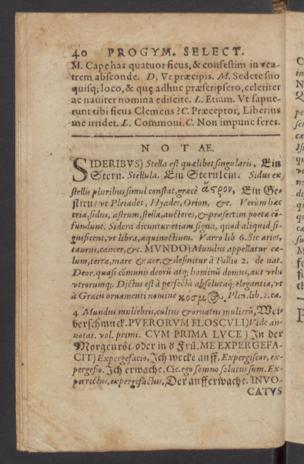 40 PROGYM. SELECT.
M. Cape has quatuor ficus, & confestim in ven-
trem absconde. D. Vt præcipis. M. Sedete suo
quisq; loco, & quę adhuc præscripsero, celeriter
ac naviter nomina ediscite. L. Etiam. Vt sapue-
runt tibi ficus Clemens? C. Præceptor, Liberius
me irridet. L. Commovi. C. Non impune feres.
NOTAE.
SIDERIBVS) Stella est quælibet singularis, Ein
Stern. Stellula. Ein Sternlein. Sidus ex
stellis pluribus simul constat, græcè ἄστρον, Ein Ge-
stirn: vt Pleiades, Hyades, Orion, &c. Verùm hæc
tria, sidus, astrum, stella, auctores, & præsertim poëtæ cō-
fundunt. Sidera dicuntur etiam signa, quòd aliquid si-
gnificent, vt libra, æquinoctium. Varro lib 6. Sic aries,
taurus, cancer, &c. MVNDO) Mundus appellatur cæ-
lum, terra, mare & aër, & definitur à Tullio 2. de nat.
Deor. quasi cōmunis deorū atq; hominū domus, aut vrbs
vtrorumq;. Dictus est à perfectâ absolutâq; elegantia, vt
à Græcis ornamenti nomine κόσμ Plin. lib. 2. ca.
4. Mundus muliebris, cultus & ornatus mulierū, Wei-
berschmuck. PVERORVM FLOSCVLI) Vide an-
notat. vol. primi. CVM PRIMA LVCE) In der
Morgenröt, oder in d Frü, ME EXPERGEFA-
CIT) Expergefacio, Ich wecke auff. Expergiscor, ex-
pergefio, Ich erwache, Cic. ego somno solutus sum. Ex-
perrectus, expergefactus, Der aufferwacht. INVO-
CATVS